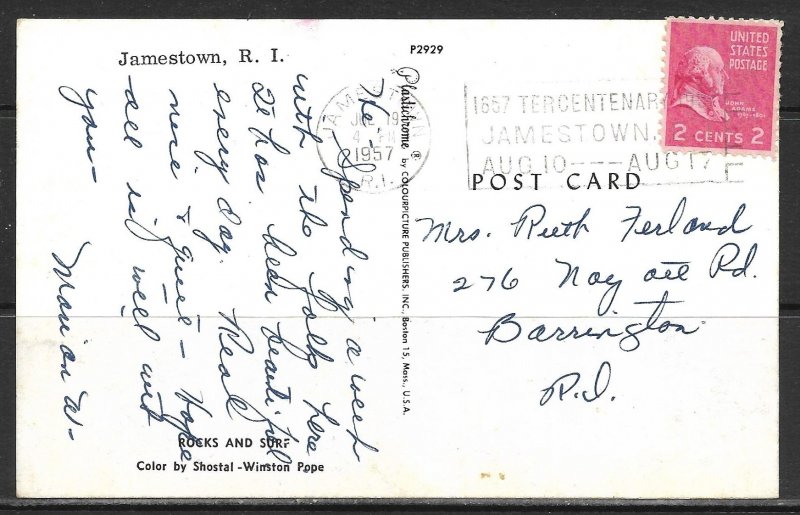 Jamestown, R. I.
P2929
UNITED
STATES
POSTAGE
JOHN
ADAMS
2 CENTS 2
JAMESTOWN
JUL 19
4 PM
1957
R.I.
1657 TERCENTENAR
JAMESTOWN,
AUG 10---AUG 17
POST CARD
Plastichrome ® by COLOURPICTURE PUBLISHERS, INC., Boston 15, Mass., U.S.A.
Hi - Spending a week
with the folks here
It has been beautiful
every day. Real
nice & quiet - Hope
all is well with
you -
Marion W-
Mrs. Ruth Ferland
276 Nayatt Rd.
Barrington
R.I.
ROCKS AND SURF
Color by Shostal-Winston Pope